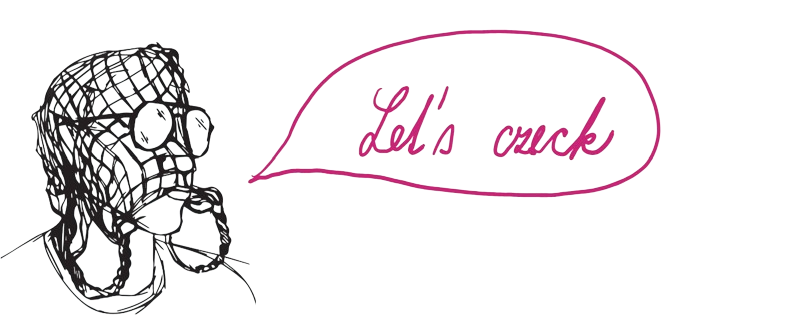 Let's czeck